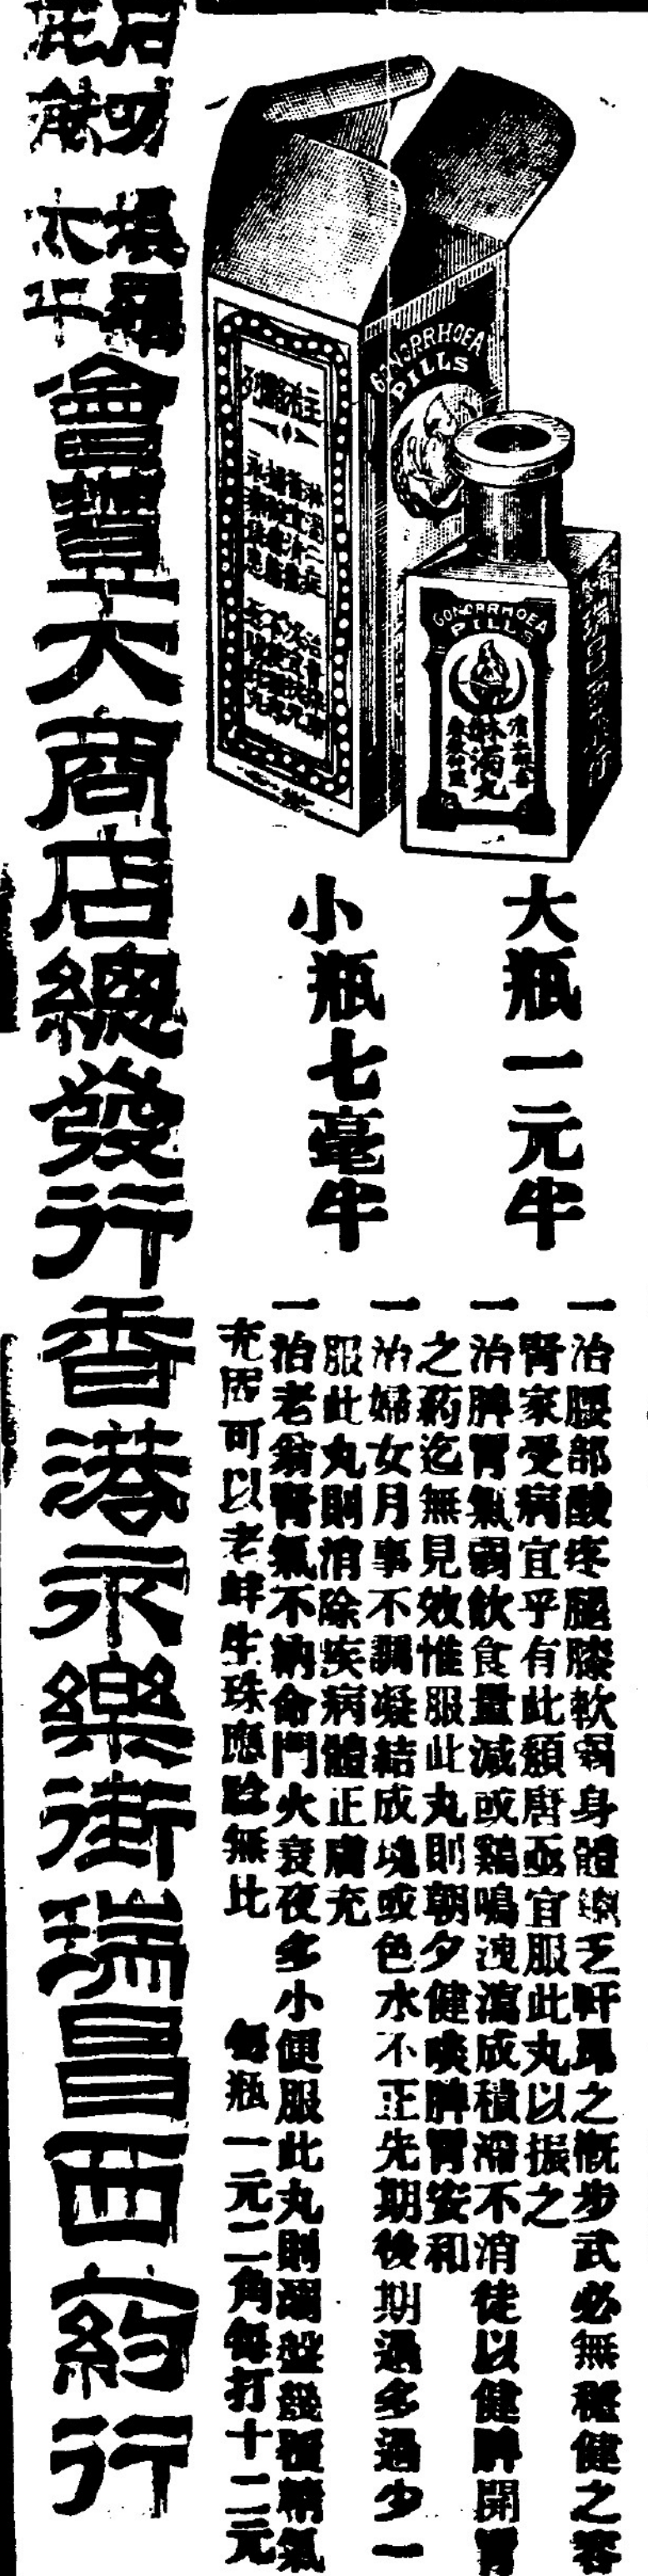 GONORRHOEA
PILLS
GONORRHOEA
PILLS
淋濁丸
大瓶一元半
小瓶七毫半
一治腰部酸疼腿膝軟弱身體乏軒昂之概步武必無穩健之容
腎家受病宜乎有此頹唐亟宜服此丸以振之
一治脾胃氣弱飲食量減或鷄鳴洩瀉成積滯不消徒以健脾開胃
之葯迄無見效惟服此丸則朝夕健啖脾胃安和
一治婦女月事不調凝結成塊或色水不正先期後期過多過少一
服此丸則消除疾病體正膚充
一治老翁腎氣不納命門火衰夜多小便服此丸則精氣
充固可以老蚌生珠應驗無比 每瓶一元二角每打十二元
石叻
庇能
太平
會豐大商店總發行香港永樂街瑞昌西葯行